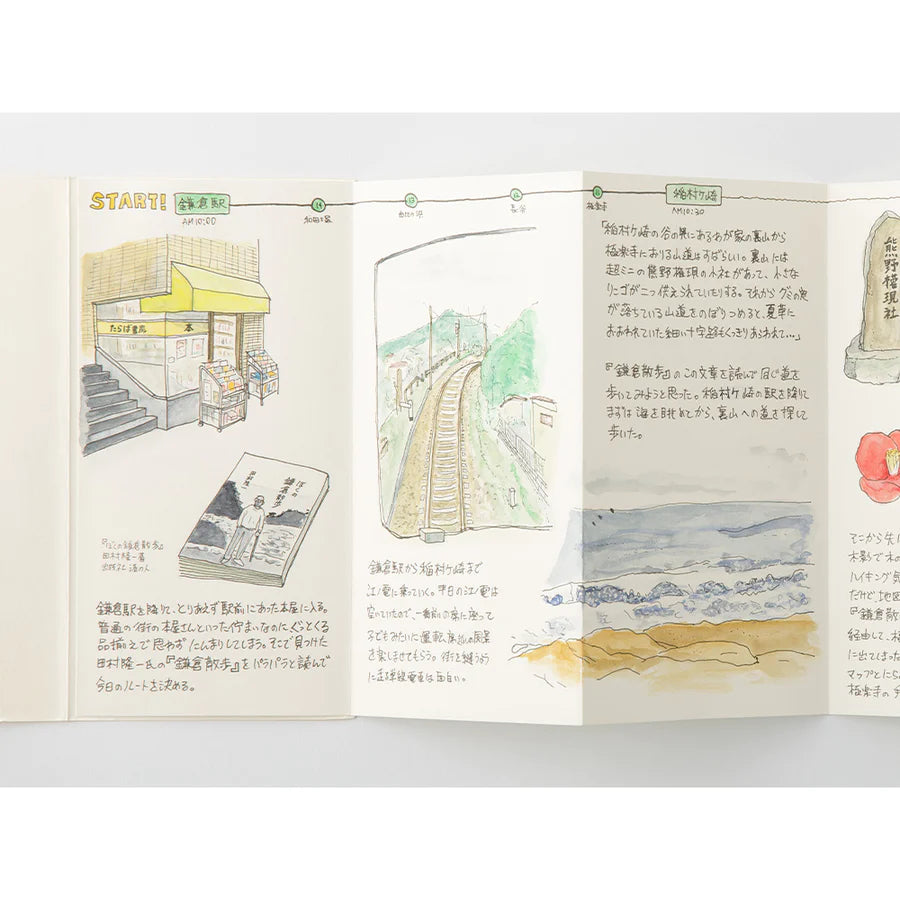 START!
鎌倉駅
AM10:00
14
和田塚
13
由比ヶ浜
12
長谷
11
極楽寺
稲村ケ崎
AM10:30
たらば書房
本
ぼくの
鎌倉散歩
田村隆一
『ぼくの鎌倉散歩』
田村隆一著
出版社 港の人
鎌倉駅を降りて、とりあえず駅前にあった本屋に入る。
普通の街の本屋さんといった佇まいなのに、ぐっとくる
品揃えで思わずたんまりしてしまう。そこで見つけた
田村隆一氏の『鎌倉散歩』をパラパラと読んで
今日のルートを決める。
鎌倉駅から稲村ケ崎まで
江ノ電に乗っていく。平日の江ノ電は
空いていたので、一番前の席に座って
子どもみたいに運転席越しの風景
を楽しませてもらう。街を縫うように
走る単線電車は面白い。
「稲村ケ崎の谷の奥にあるわが家の裏山から
極楽寺におりる山道はすばらしい。裏山には
超ミニの熊野権現の小社があって、小さな
リンゴが二つ供えられていたりする。それからグミの実
が落ちている山道をのぼりつめると、夏草に
おおわれていた細い十字路もくっきりあらわれて…」
『鎌倉散歩』のこの文章を読んで同じ道を
歩いてみようと思った。稲村ケ崎の駅を降りて
まずは海を眺めてから、裏山への道を探して
歩いた。
熊野権現社
そこから先は
木影で木の
ハイキング気
だけど、地図
『鎌倉散
経由して、極
に出てしまった
マップとにら
極楽寺の